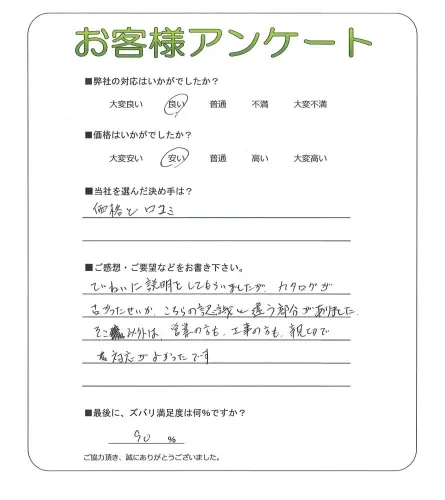 お客様アンケート
■弊社の対応はいかがでしたか？
大変良い 良い 普通 不満 大変不満
■価格はいかがでしたか？
大変安い 安い 普通 高い 大変高い
■当社を選んだ決め手は？
価格と口コミ
■ご感想・ご要望などをお書き下さい。
ていねいに説明をしてもらいましたが、カタログが
古かったせいか、こちらの認識と違う部分がありました。
そこ以外は、営業の方も、工事の方も、親切で
対応がよかったです
■最後に、ズバリ満足度は何％ですか？
90 %
ご協力頂き、誠にありがとうございました。